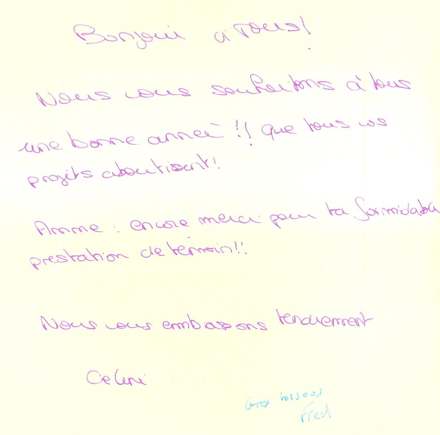 Bonjour à Tous!
Nous vous souhaitons à tous
une bonne année !! Que tous vos
projets aboutissent!
encore merci pour ta formidable
prestation de témoin!!
Nous vous embrassons tendrement
Celine
Fred